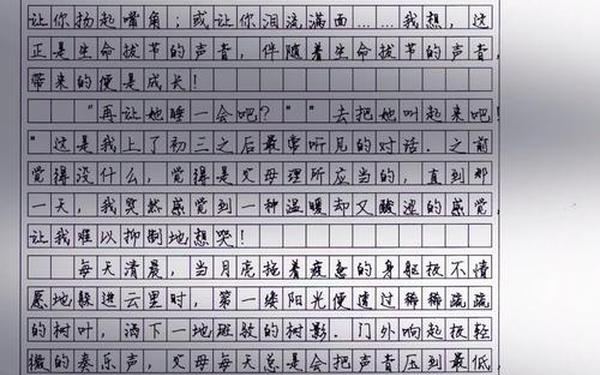 让你扬起嘴角；或让你泪流满面……我想，这
正是生命拔节的声音，伴随着生命拔节的声音，
带来的便是成长！
“再让她睡一会吧？”“去把她叫起来吧！
”这是我上了初三之后最常听见的对话．之前
觉得没什么，觉得是父母理所应当的，直到那
一天，我突然感觉到一种温暖却又酸涩的感觉，
让我难以抑制地想哭！
每天清晨，当月亮拖着疲惫的身躯极不情
愿地躲进云里时，第一缕阳光便透过稀稀疏疏
的树叶，洒下一地斑驳的树影．门外响起极轻
微的奏乐声，父母每天总是会把声音压到最低，